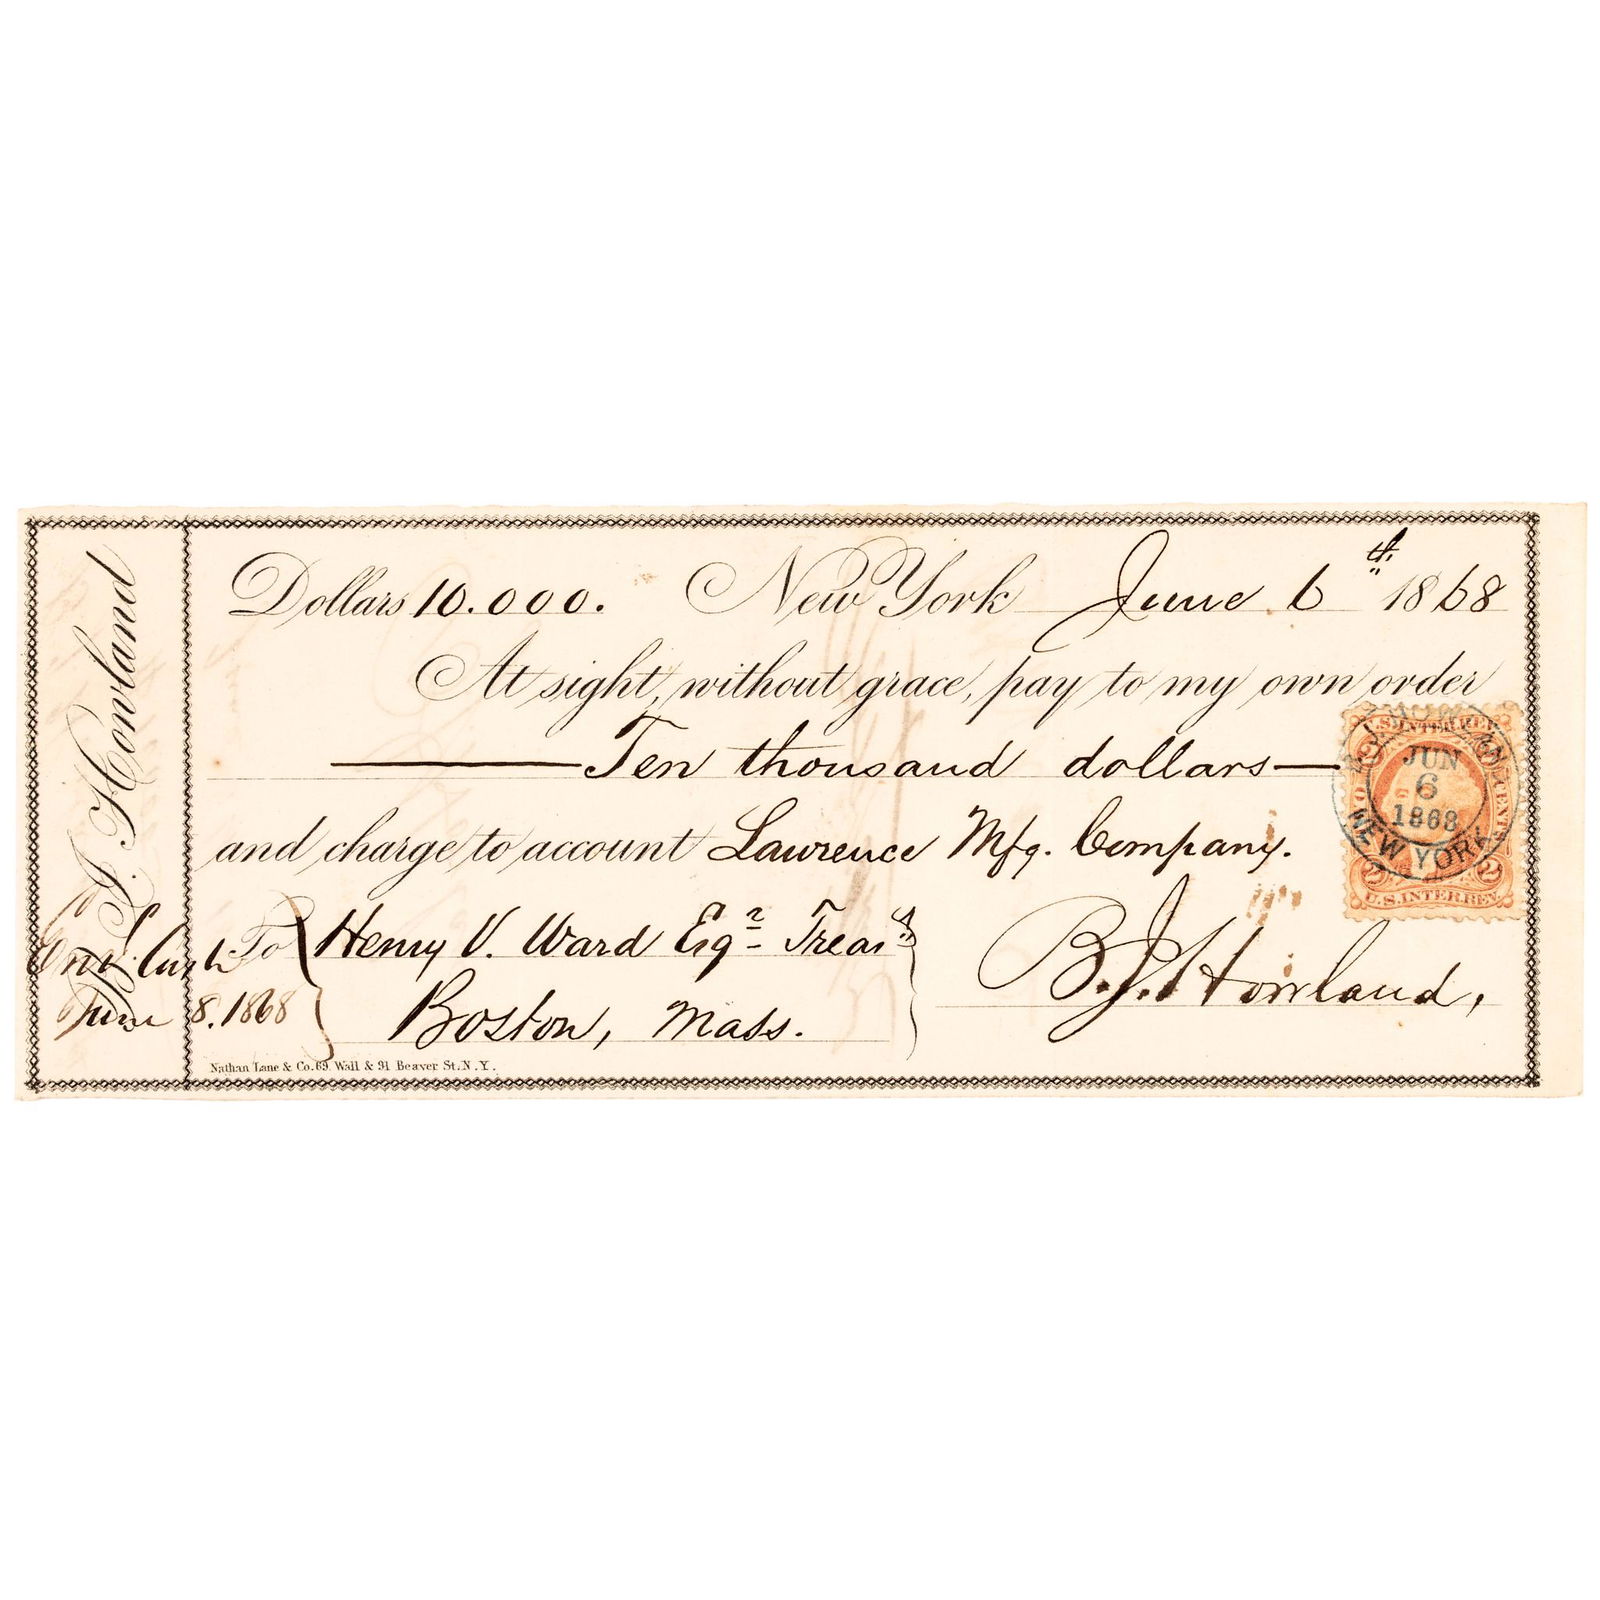 B. J. Howland
Dollars 10.000. New York June 6th 1868
At sight, without grace, pay to my own order
Ten thousand dollars
and charge to account Lawrence Mfg. Company.
To Henry V. Ward Esqr. Treasr.
Boston, Mass.
B. J. Howland,
June 8. 1868
Nathan Lane & Co. 69 Wall & 91 Beaver St. N.Y.
U.S. INTER. REV.
JUN
6
1868
NEW YORK
TWO CENTS
2 2
U.S. INTER. REV.